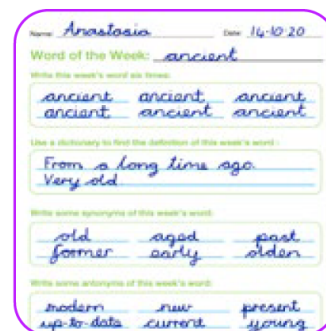 Name: Anastasia Date: 14.10.20
Word of the Week: ancient
Write this week's word six times:
ancient ancient ancient
ancient ancient ancient
Use a dictionary to find the definition of this week's word:
From a long time ago.
Very old.
Write some synonyms of this week's word:
old aged past
former early olden
Write some antonyms of this week's word:
modern new present
up-to-date current young